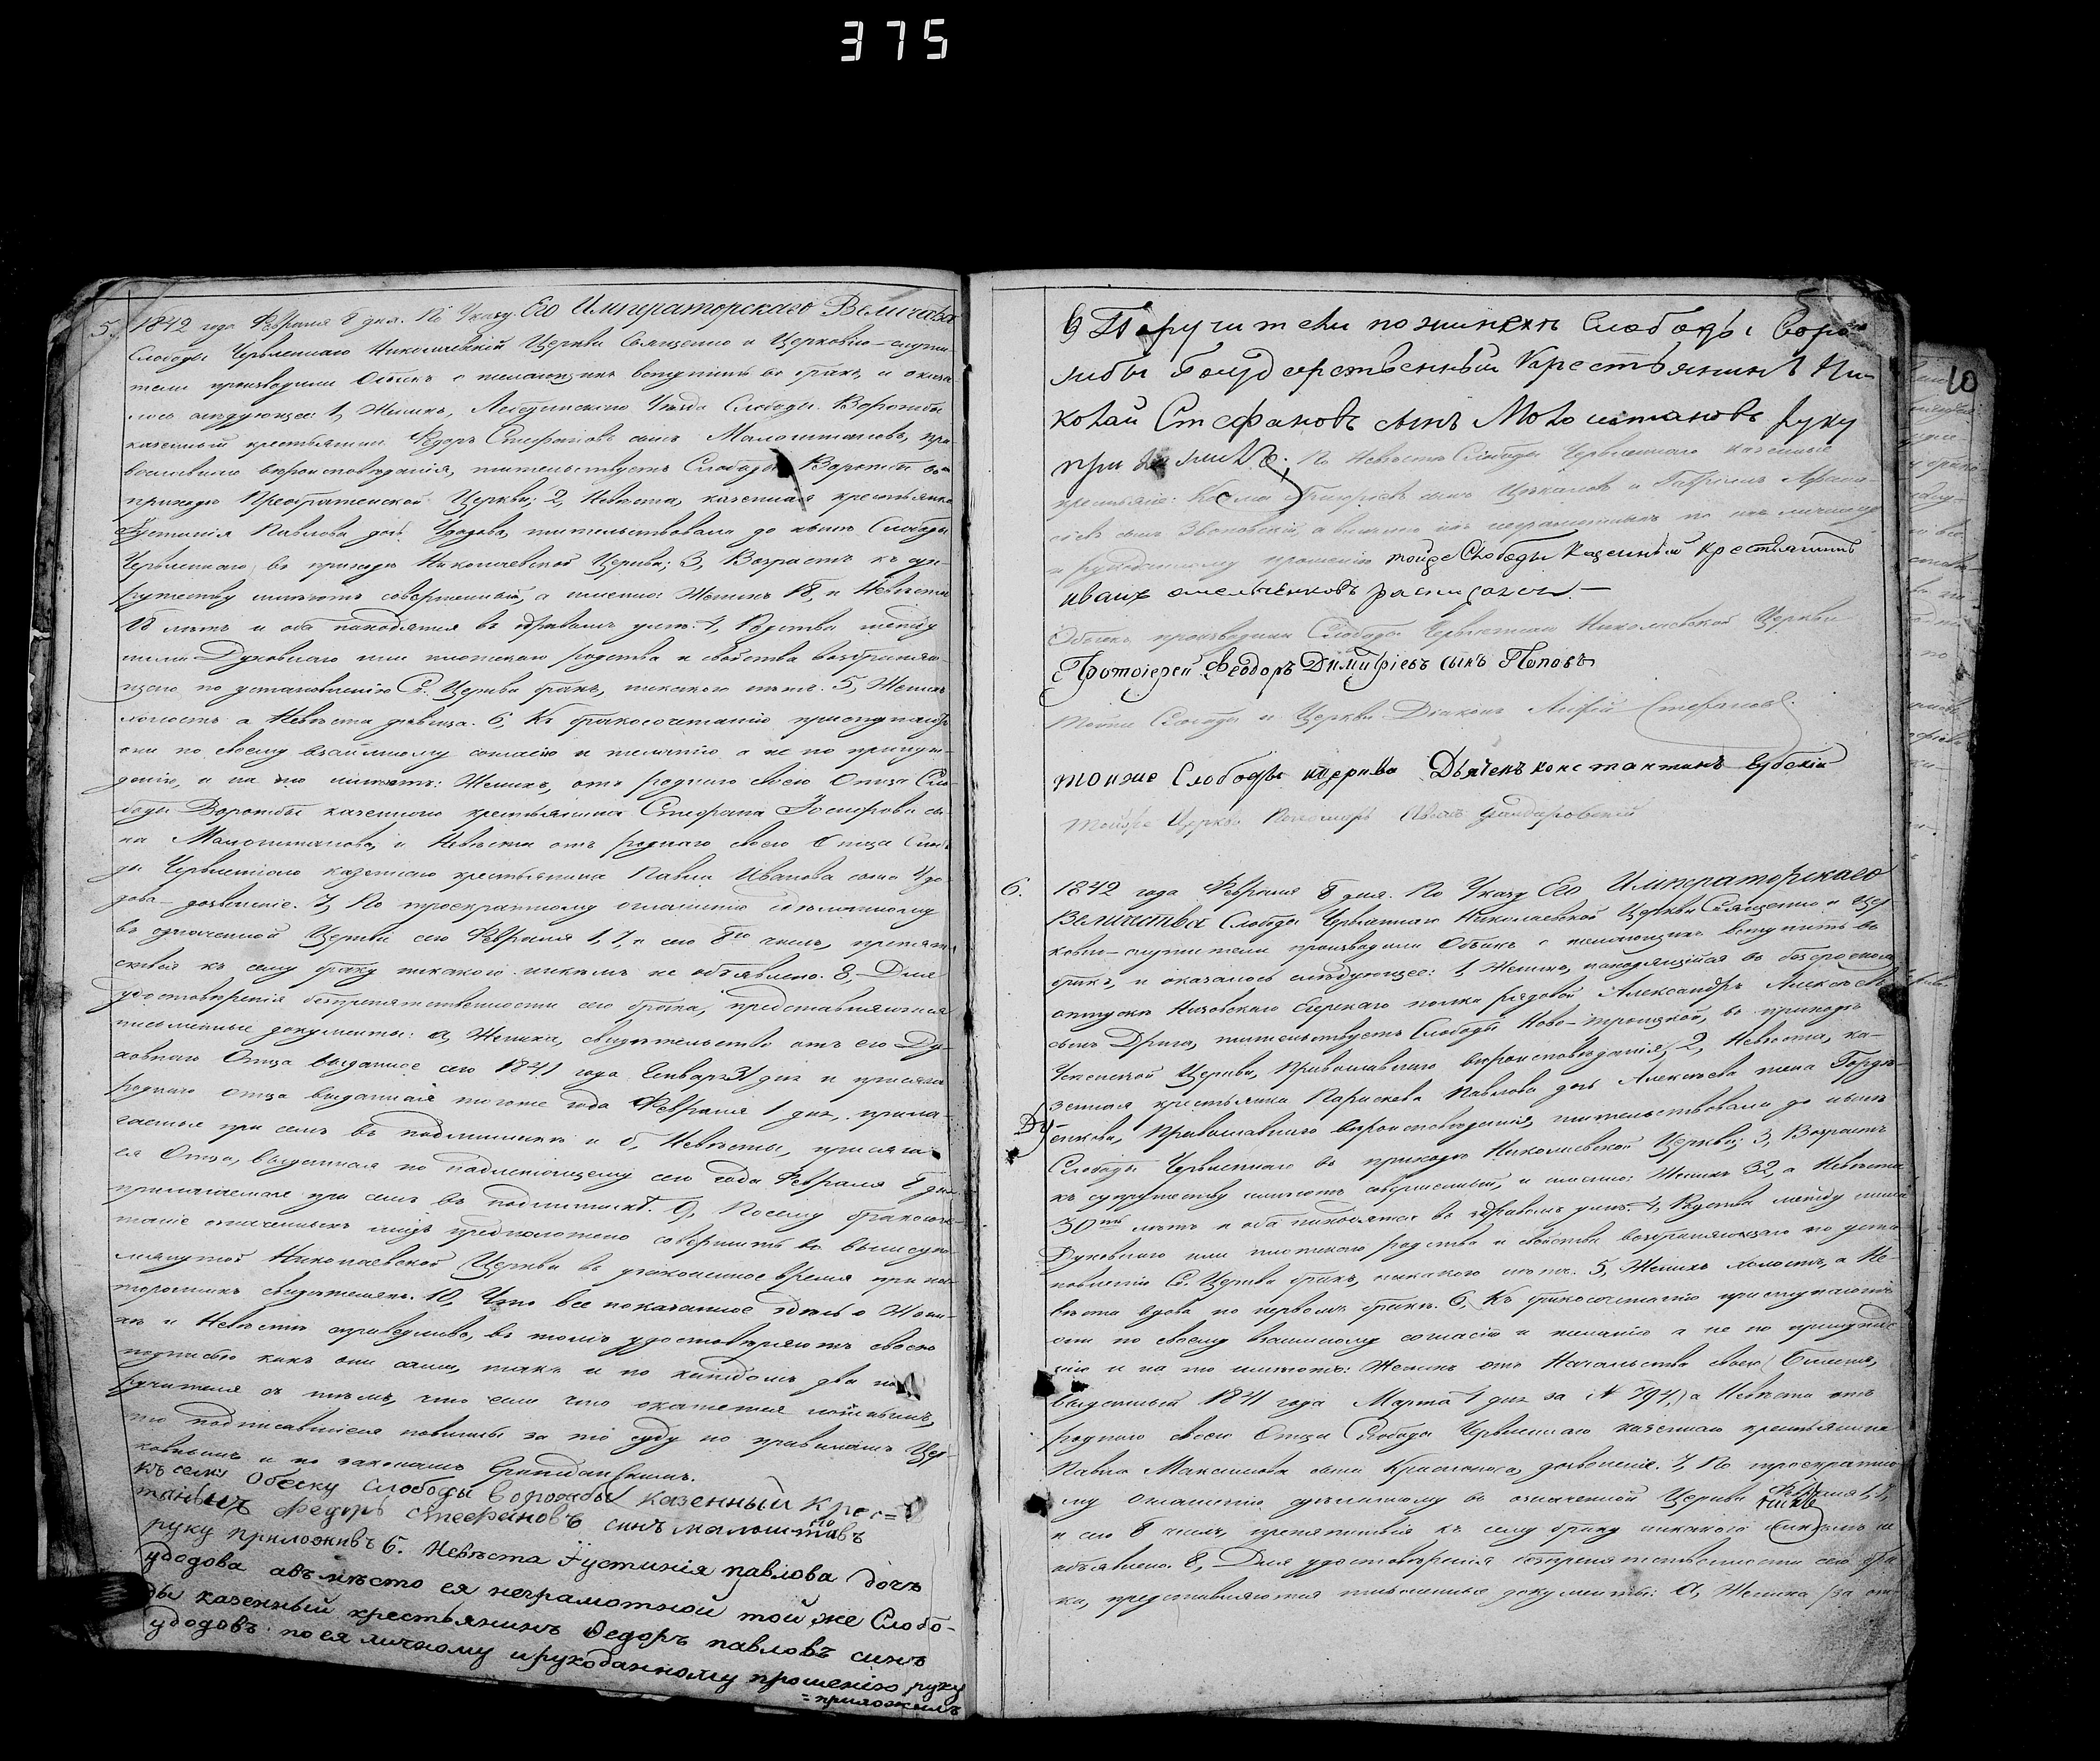 375
5.
1842 года Февраля 8 дня. По Указу Его Императорскаго Величества
Слободы Червленнаго Николаевской Церкви Священно и Церковно-служи-
тели производили Обыскъ о желающихъ вступить въ бракъ, и оказа-
лось следующее: 1, Женихъ, Лебединскаго Уезда Слободы Ворожбы
казенный крестьянинъ Федоръ Стефановъ сынъ Малоштановъ, пра-
вославнаго вероисповеданія, жительствуетъ Слободы Ворожбы въ
приходе Преображенской Церкви; 2, Невеста, казенная крестьянка
Іустинія Павлова дочь Удодова, жительствовала до ныне Слободы
Червленнаго въ приходе Николаевской Церкви; 3, Возрастъ къ суп-
ружеству имеютъ совершенный, а именно: Женихъ 18, а Невеста
18 летъ и оба находятся въ здравомъ уме. 4, Родства между
ними Духовнаго или плотскаго родства и свойства возбраняю-
щаго по установленію Св. Церкви бракъ, никакого нетъ. 5, Женихъ
холостъ а Невеста девица. 6, Къ бракосочетанію приступаютъ
они по своему взаимному согласію и желанію а не по принуж-
денію, и на то имеютъ: Женихъ, отъ роднаго своего Отца Сло-
боды Ворожбы казеннаго крестьянина Стефана Іосифова сы-
на Малоштанова, и Невеста отъ роднаго своего Отца Слобо-
ды Червленнаго казеннаго крестьянина Павла Иванова сына Удо-
дова дозволеніе. 7, По троекратному оглашенію деланному
въ означенной Церкви сего Февраля 1, 7, и сего 8го числъ, препят-
ствія къ сему браку никакого никемъ не объявлено. 8, Для
удостоверенія безпрепятственности сего брака, представляются
письменные документы: а, Жениха, свидетельство отъ его Ду-
ховнаго Отца выданное сего 1841 года Генваря 31 дня и присяга
роднаго отца выданная тогоже года Февраля 1 дня, прила-
гаемые при семъ въ подлиннике и б, Невесты, присяга
ея Отца, выданная по надлежащему сего года Февраля 8 дня
прилагаемая при семъ въ подлиннике. 9, Посему бракосоче-
таніе означенныхъ лицъ предположено совершить въ вышеупо-
мянутой Николаевской Церкви въ узаконенное время при по-
стороннихъ свидетеляхъ. 10, Что все показанное здесь о Жени-
хе и Невесте справедливо, въ томъ удостоверяютъ своею
подписью какъ они сами, такъ и по каждомъ два по-
ручителя съ темъ, что если что окажется ложнымъ,
то подписавшіеся повинны за то суду по правиламъ Цер-
ковнымъ и по законамъ Гражданскимъ.
Къ сему Обеску слободы ворожбы казенный крес=
Федоръ стеефановъ синъ малоштановъ
руку приложивъ б. Невеста Іустинія павлова дочъ
удодова авъместо ея неграмотной той же Слобо-
ды казенный крестьянинъ Федоръ павловъ синъ
удодовъ поея личному ирукоданному прошенію руку
=приложилъ
5
10
Поручители пожинехе Слободы Воро
жбы Государственный Крестьянинъ Ни-
колай Стефановъ сынъ Молоштановъ руку
приложилъ; По Невесте Слободы Червленнаго казенные
крестьяне: Косма Григорьевъ сынъ Цекаловъ и Гавріилъ Афана-
сіевъ сынъ Звоновскій, а вместо ихъ неграмотныхъ по ихъ личному
и рукоданному прошенію тойже Слободы Казенный крестьянинъ
иванъ омельченковъ росписался –
Обыскъ производили Слободы Червленнаго Николаевской Церкви
Протоіерей Феодоръ Димитріевъ сынъ Поповъ
Тойже Слободы и Церкви Діаконъ Стефановъ.
тоиже Слободы ицеркви Дьячекъ константинъ
Тойже Церкви Пономарь
6.
1842 года Февраля 8 дня. По Указу Его Императорскаго
Величества Слободы Червленнаго Николаевской Церкви Священно и Цер-
ковно-служители производили Обыскъ о желающихъ вступить въ
бракъ, и оказалось следующее: 1, Женихъ, находящійся въ безсрочномъ
отпуске Низовскаго Егерскаго полка рядовой Александръ Алексеевъ
сынъ Дрига, жительствуетъ Слободы Ново-троицкой, въ приходе
Успенской Церкви, Православнаго вероисповеданія; 2, Невеста, ка-
зенная крестьянка Параскева Павлова дочь Алексеева жена Горде-
енкова, Православнаго вероисповеданія, жительствовала до ныне
Слободы Червленнаго въ приходе Николаевской Церкви; 3, Возрастъ
къ супружеству имеютъ совершенный, а именно: Женихъ 32, а Невеста
30ти летъ и оба находятся въ здравомъ уме. 4, Родства между ними
Духовнаго или плотскаго родства и свойства возбраняющаго по уста-
новленію Св. Церкви бракъ, никакого нетъ. 5, Женихъ холостъ, а Не-
веста вдова по первомъ браке. 6, Къ бракосочетанію приступаютъ
они по своему взаимному согласію и желанію а не по принужде-
нію и на то имеютъ: Женихъ отъ Начальства своего Билетъ,
выданный 1841 года Марта 1 дня за № 794,) а Невеста отъ
роднаго своего Отца Слободы Червленнаго казеннаго крестьянина
Павла Максимова сына дозволеніе. 7, По троекратно-
му оглашенію деланному въ означенной Церкви Февраля 1, 7,
и сего 8 числъ, препятствія къ сему браку никакого никемъ не
объявлено. 8, Для удостоверенія безпрепятственности сего бра-
ка, представляются письменные документы: а, Жениха